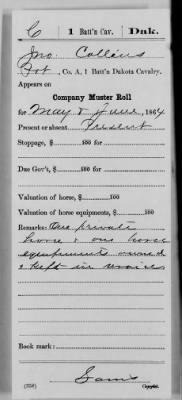 C 1 Batt'n Cav. Dak.
Jno. Collins
Pvt, Co. A, 1 Batt'n Dakota Cavalry.
Appears on
Company Muster Roll
for May & June, 1864
Present or absent Present
Stoppage, $ 100 for
Due Gov't, $ 100 for
Valuation of horse, $ 100
Valuation of horse equipments, $ 100
Remarks: One private
horse & one horse
equipments owned
& kept in service
Book mark:
(358) Copyist.